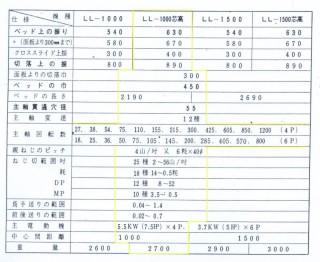 仕様 機種 LL-1000 LL-1000芯高 LL-1500 LL-1500芯高
ベッド上の振り 540 630 540 630
〃 (面板より300mmまで) 580 670 580 670
クロススライド上振 300 400 300 400
切落上の振 800 890 800 890
面板よりの切落巾 300
ベッドの巾 450
ベッドの長さ 2190 2690
主軸貫通穴径 55
主軸変速 12種
主軸回転数 27. 38. 54. 75. 110. 155. 215. 300. 425. 605. 850. 1200 (4P)
18. 25. 36. 50. 75. 105. 145. 200. 285. 405. 570. 800 (6P)
親ねじのピッチ 4山/吋 又 6粍×40φ
ねじ切範囲吋 25種 2~56山/吋
粍 18種 14~0.5粍
DP 12種 8~52
MP 10種 3.5~0.5
長手送りの範囲 0.04~1.4
前後送りの範囲 0.02~0.7
主電動機 5.5KW (7.5HP)×4P. 3.7KW (5HP)×6P
中心間距離 1000 1500
重量 2600 2700 2900 3000